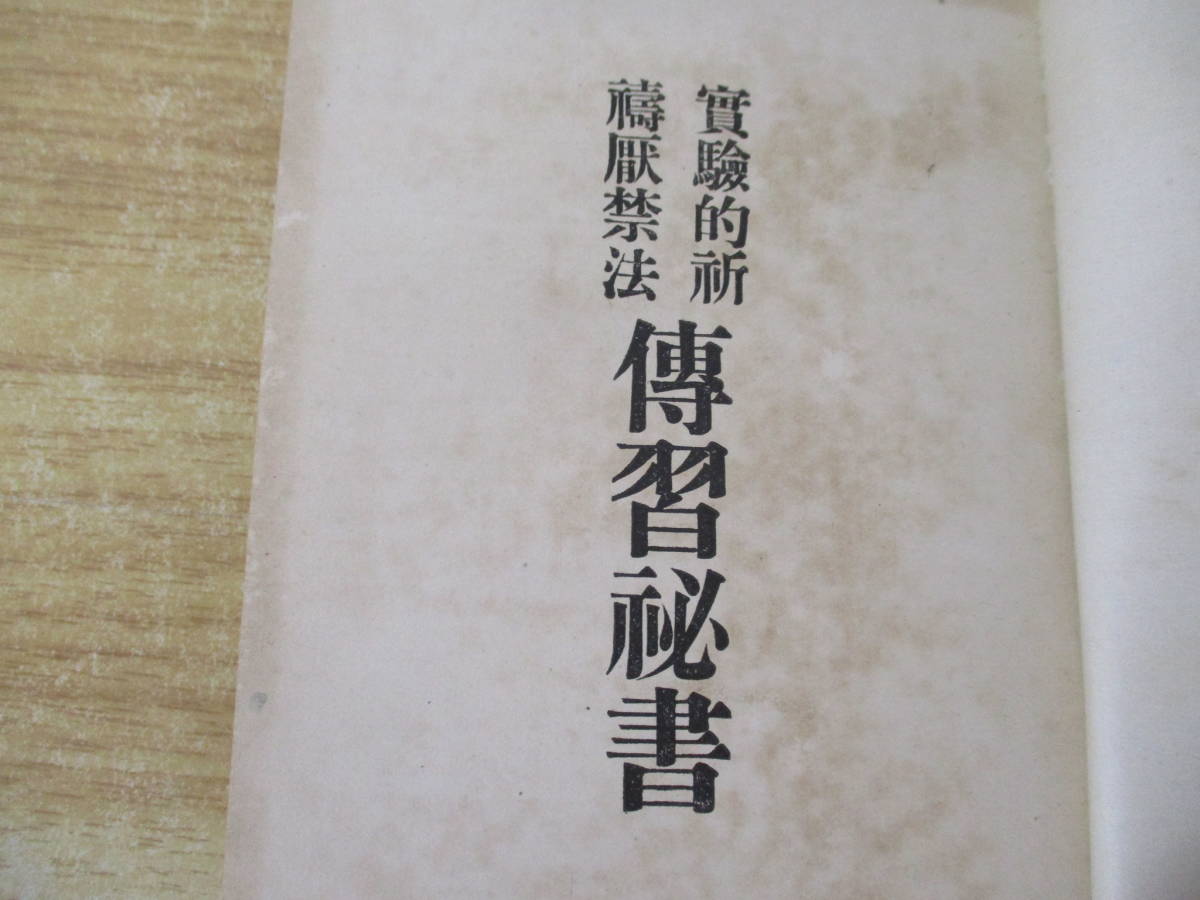 實驗的祈
禱厭禁法
傳習祕書